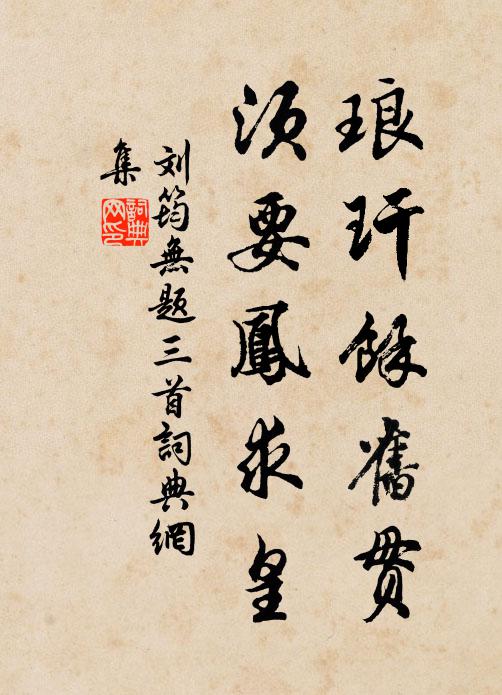 琅玕餘舊貫
須要鳳求皇
刘筠無题三首詞典網
集
詞典
网印